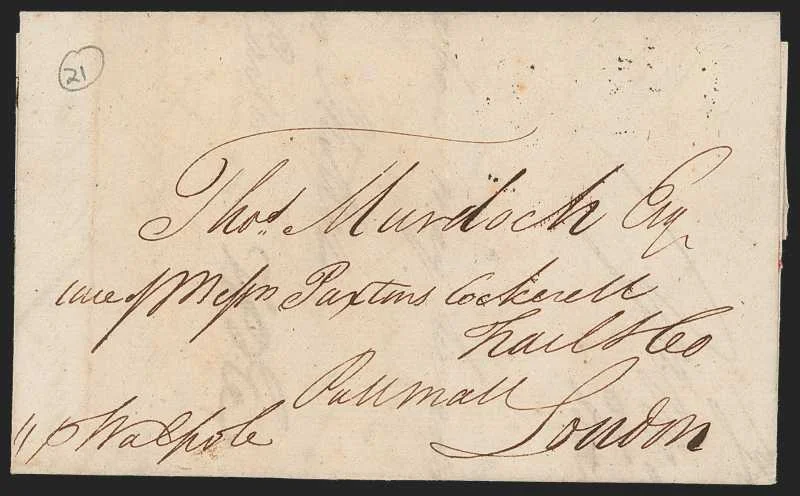 21
Thos. Murdoch Esq
care of Messrs Paxtons Cockerell
Trail & Co
Pall mall
London
p Walpole